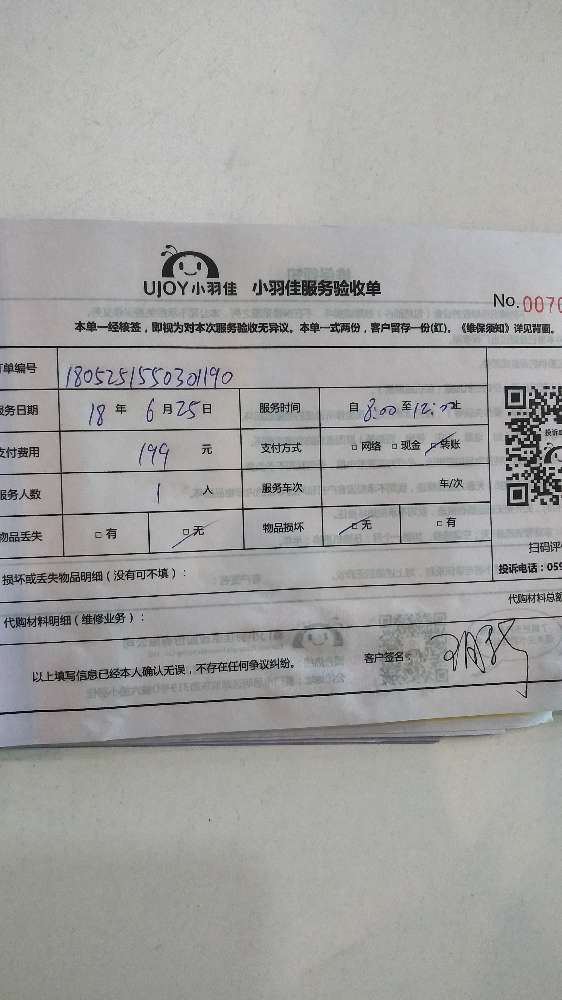 UJOY小羽佳 小羽佳服务验收单
No. 0070
本单一经核签，即视为对本次服务验收无异议。本单一式两份，客户留存一份(红)。《维保须知》详见背面。
订单编号 1805251550301190
服务日期 18 年 6 月 25 日 服务时间 自 8:00 至 12:00 止
支付费用 199 元 支付方式 □网络 □现金 □转账
服务人数 1 人 服务车次 车/次
物品丢失 □有 □无 物品损坏 □无 □有
扫码评价
投诉电话：059
损坏或丢失物品明细（没有可不填）：
代购材料明细（维修业务）：
代购材料总额
以上填写信息已经本人确认无误，不存在任何争议纠纷。 客户签名：